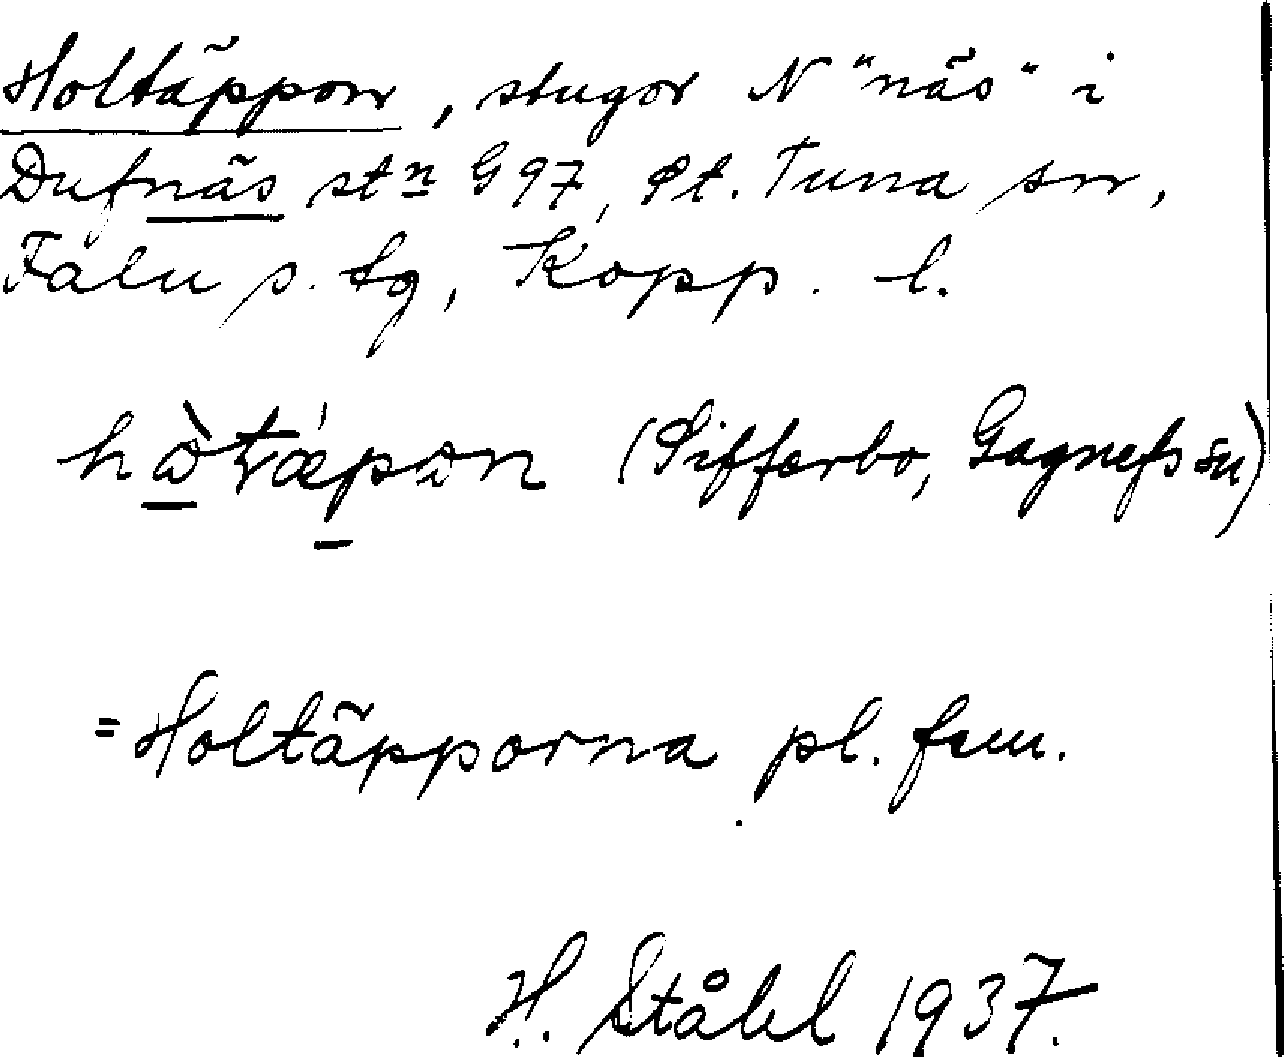 Holtäppon, stugor N "näs" i
Dufnäs stn G 97, St. Tuna sn,
Falu s. tg, Kopp. l.
(Sifferbo, Gagnefs sn)
= Holtäpporna pl. fem.
H. Ståhl 1937.